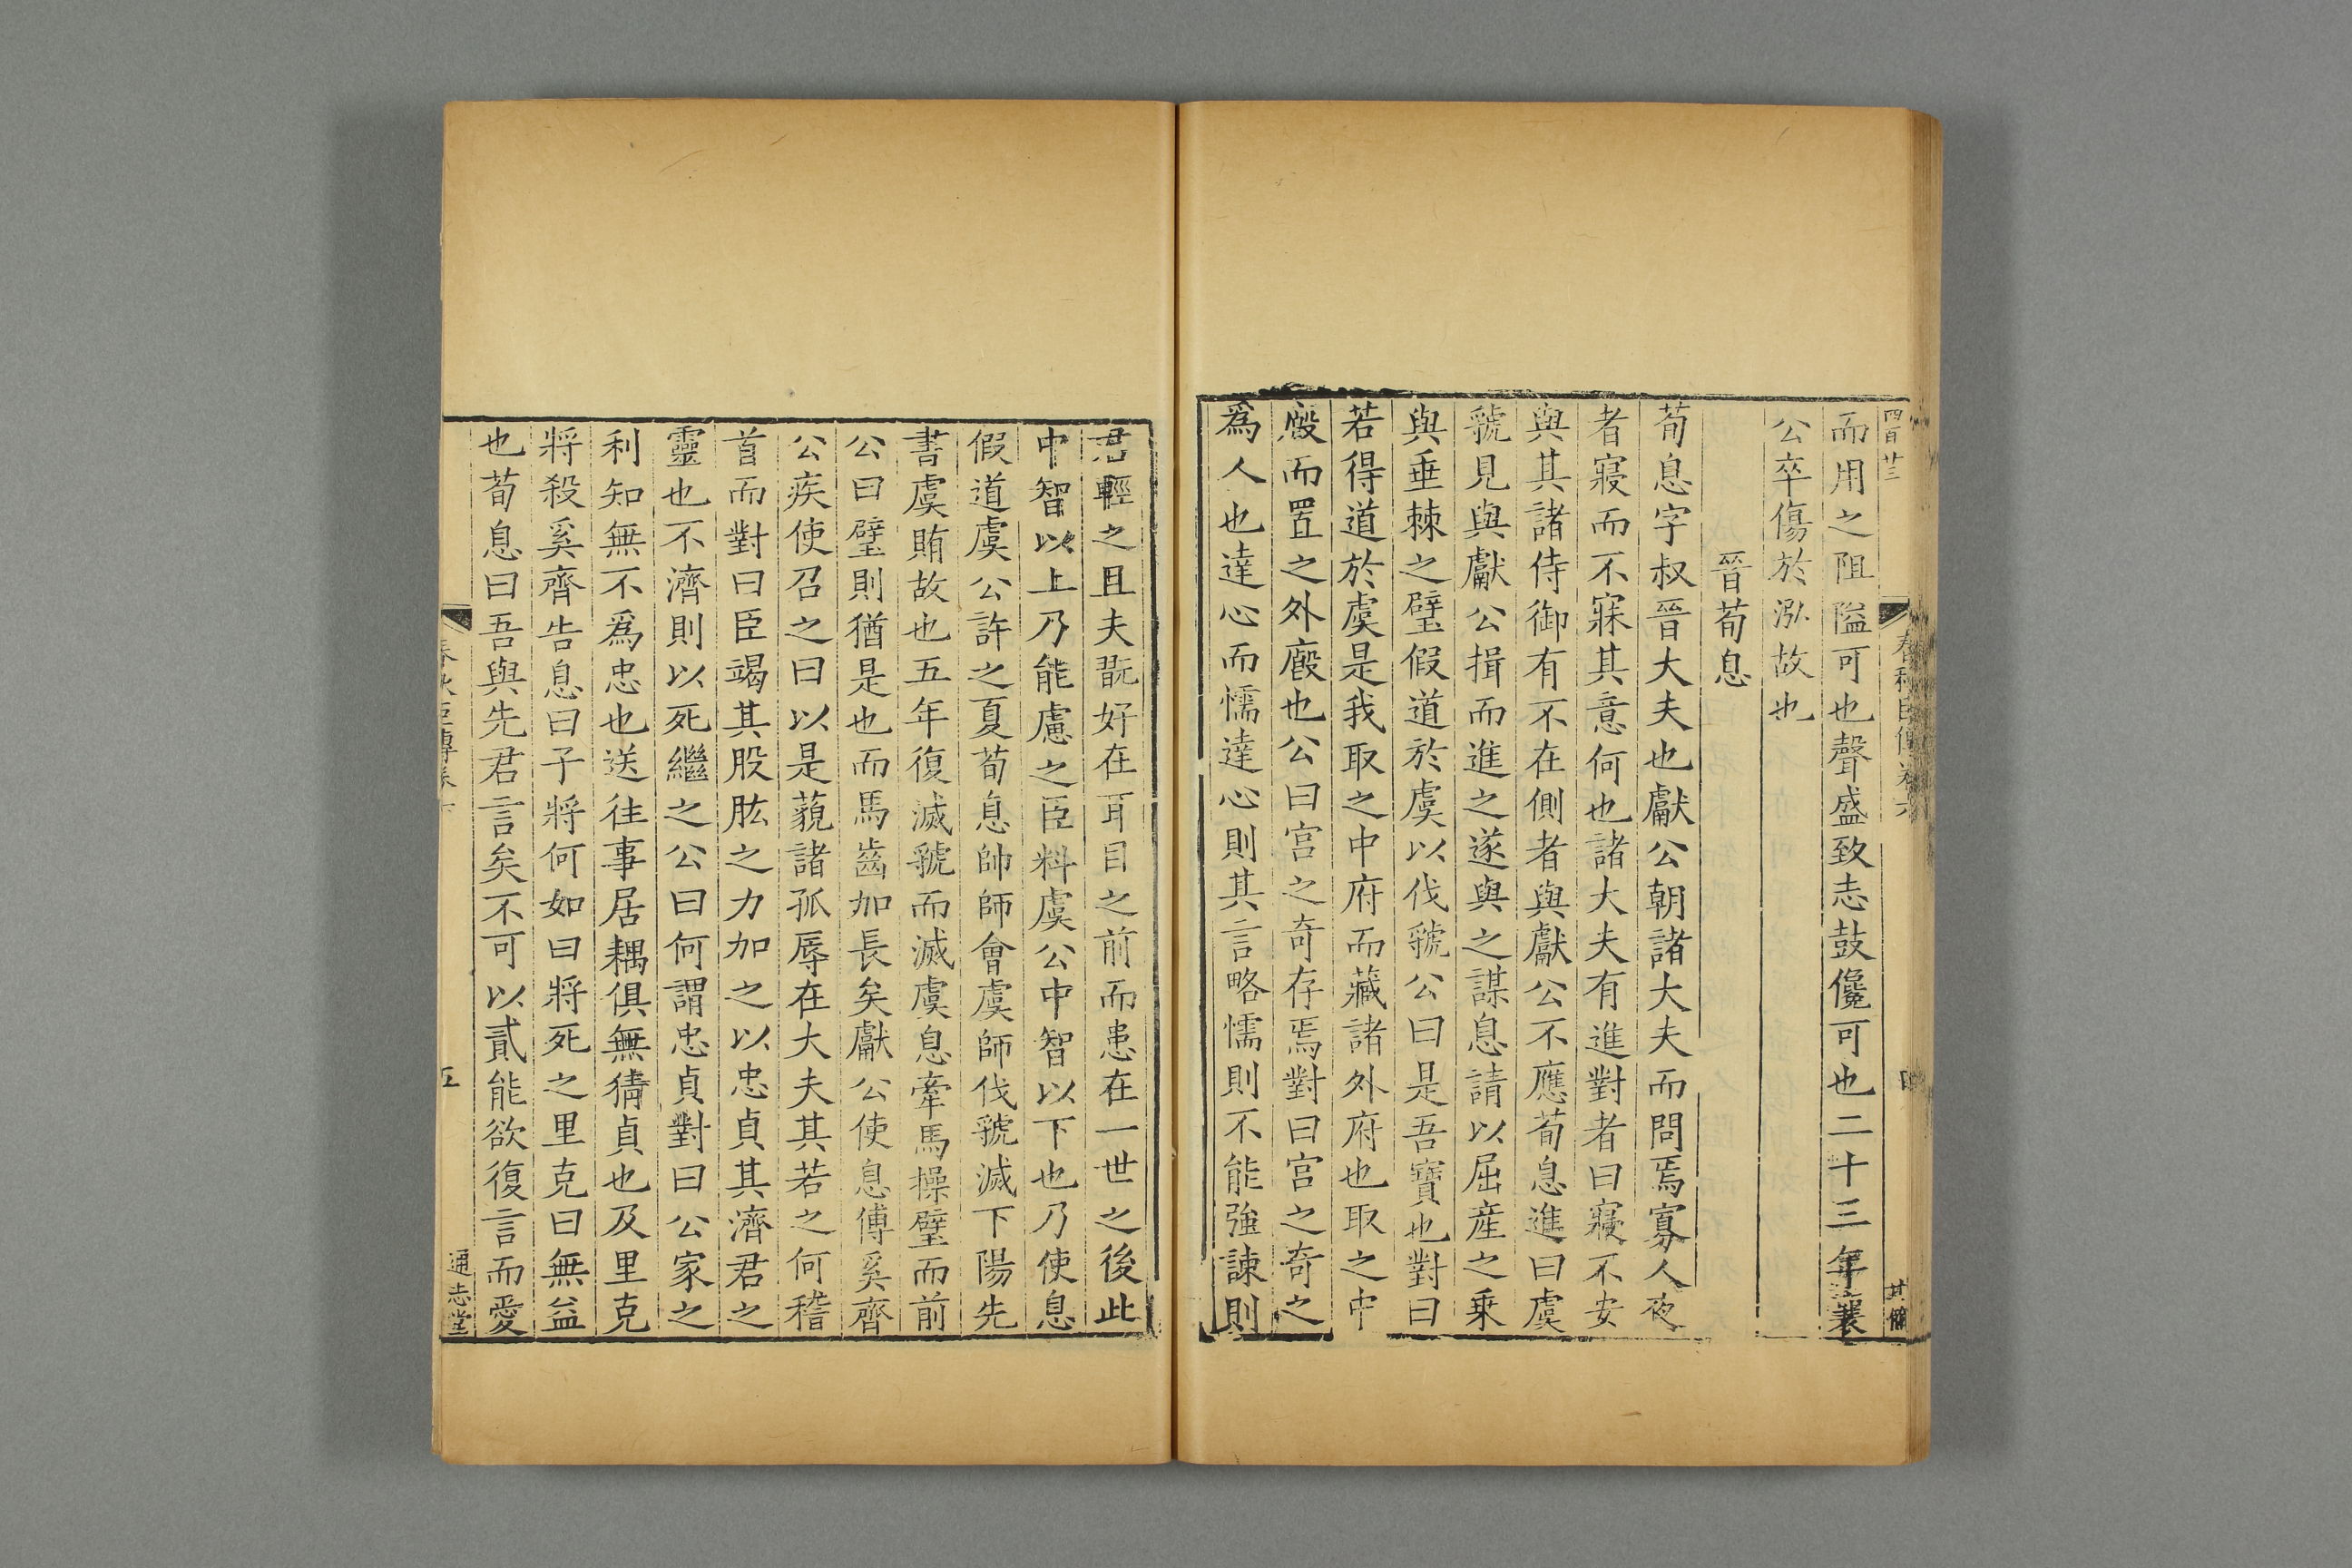 而用之阻隘可也聲盛致志鼓儳可也二十三年襄
公卒傷於泓故也
晉荀息
荀息字叔晉大夫也獻公朝諸大夫而問焉寡人夜
者寢而不寐其意何也諸大夫有進對者曰寢不安
與其諸侍御有不在側者與獻公不應荀息進曰虞
虢見與獻公揖而進之遂與之謀息請以屈産之乗
與垂棘之璧假道於虞以伐虢公曰是吾寶也對曰
若得道於虞是我取之中府而藏諸外府也取之中
廄而置之外廄也公曰宫之奇存焉對曰宫之奇之
爲人也達心而懦達心則其言略懦則不能強諫則
君輕之且夫翫好在耳目之前而患在一世之後此
中智以上乃能慮之臣料虞公中智以下也乃使息
假道虞公許之夏荀息帥師會虞師伐虢滅下陽先
書虞賄故也五年復滅虢而滅虞息牽馬操璧而前
公曰璧則猶是也而馬齒加長矣獻公使息傅奚齊
公疾使召之曰以是藐諸孤辱在大夫其若之何稽
首而對曰臣竭其股肱之力加之以忠貞其濟君之
靈也不濟則以死繼之公曰何謂忠貞對曰公家之
利知無不爲忠也送往事居耦俱無猜貞也及里克
將殺奚齊告息曰子將何如曰將死之里克曰無益
也荀息曰吾與先君言矣不可以貳能欲復言而愛
春秋臣傳卷
五
通志堂